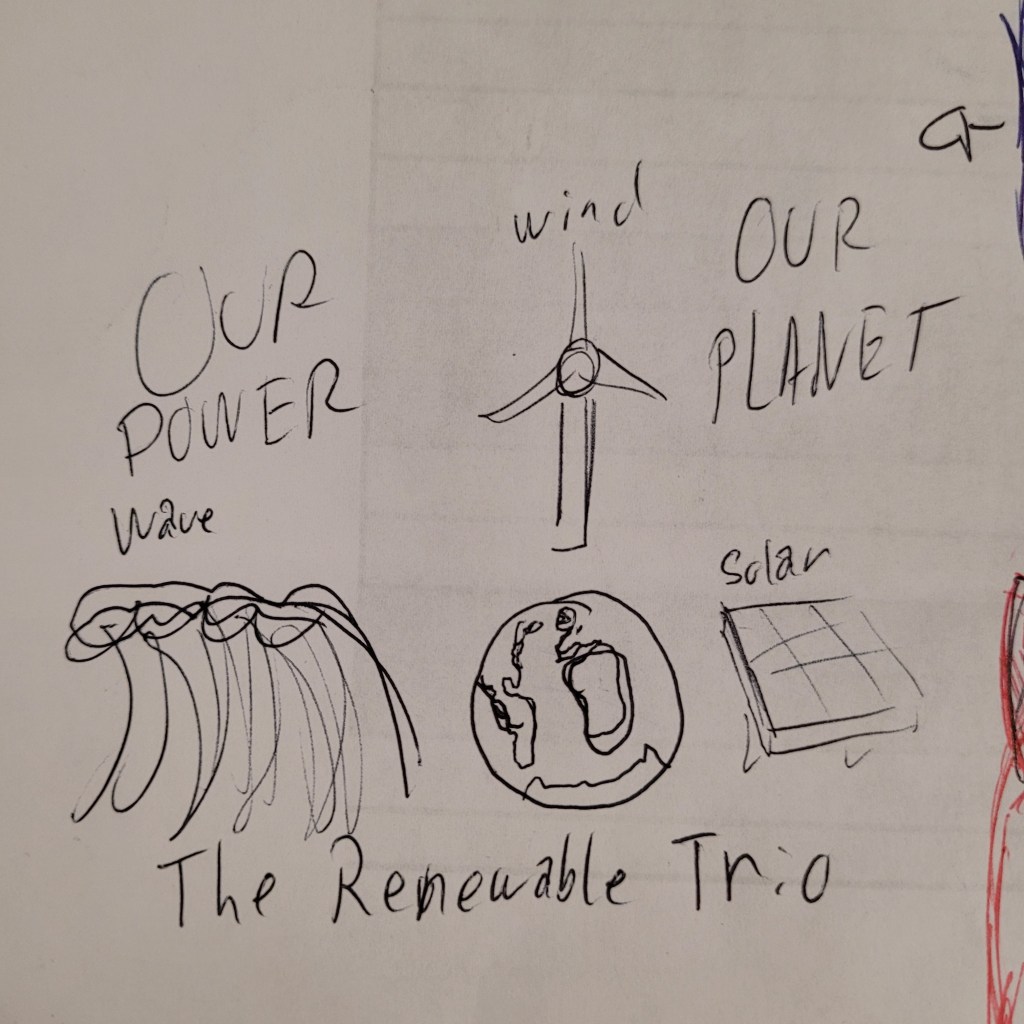 wind
OUR
PLANET
OUR
POWER
Wave
Solar
The Renewable Trio